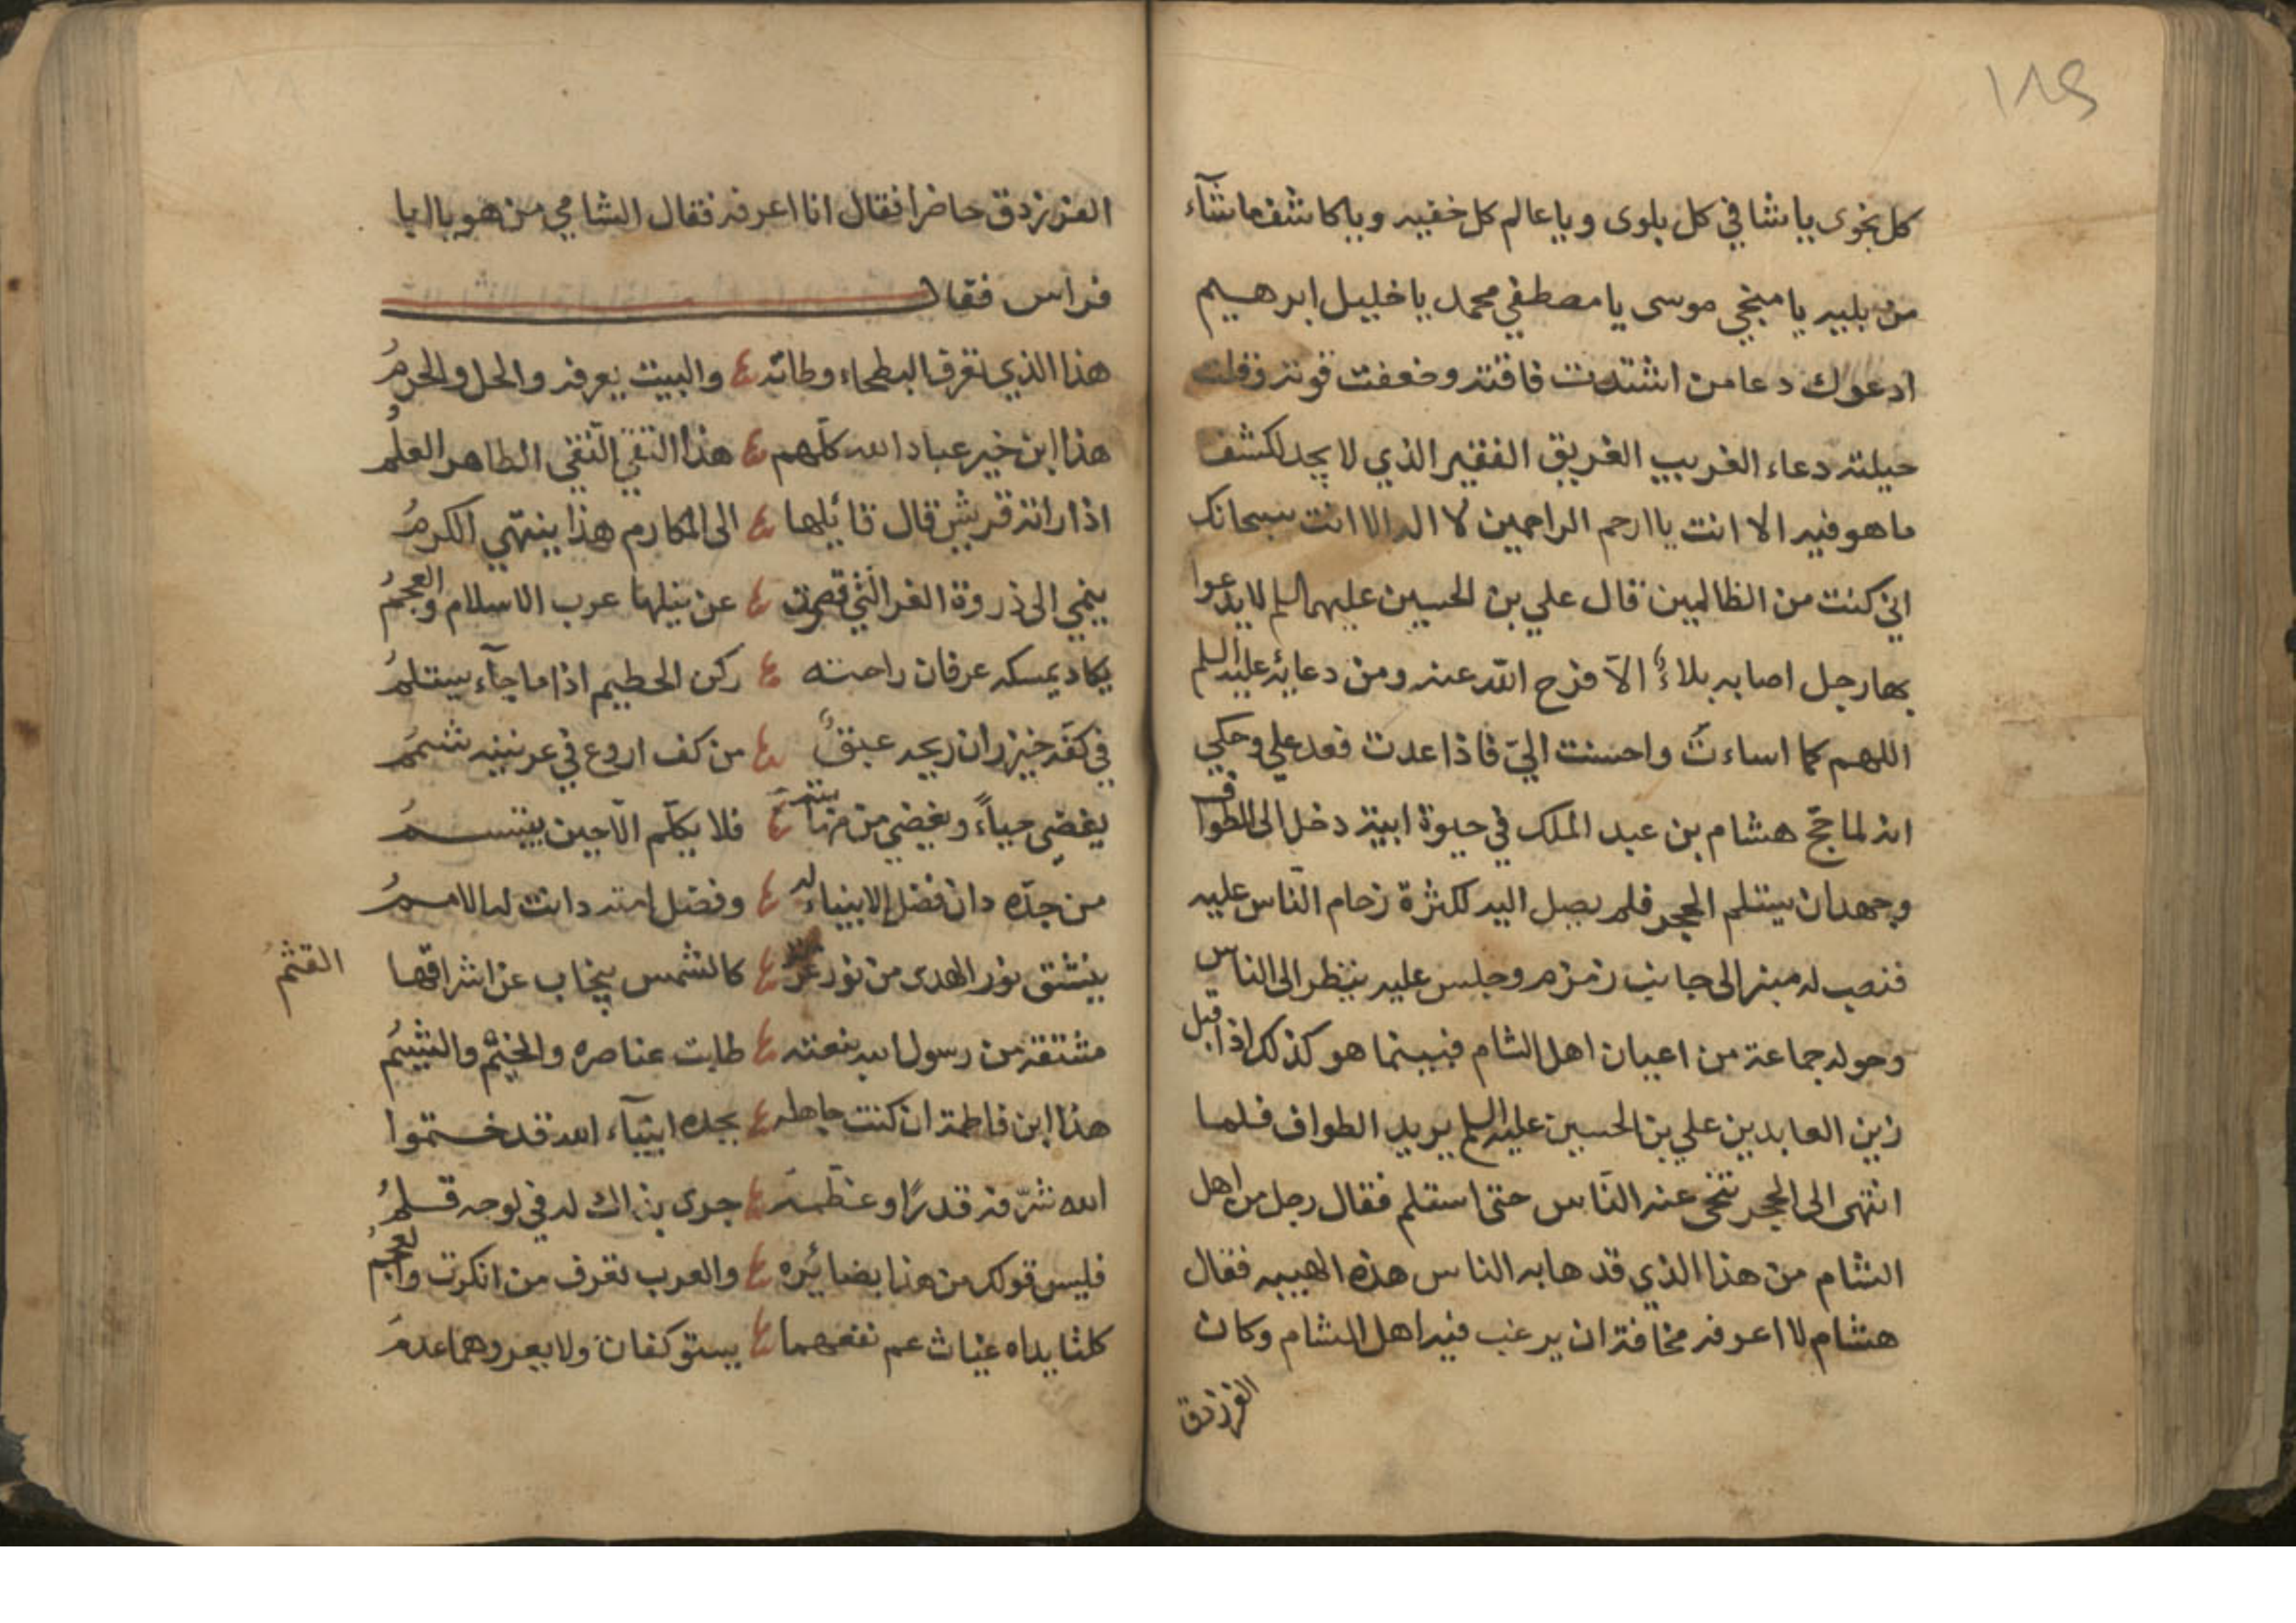 ١٨٩
كل نجوى يا شافي كل بلوى ويا عالم كل خفيه ويا كاشف ما شآء
من بليه يا منجي موسى يا مصطفي محمد يا خليل ابرهيم
ادعوك دعا من اشتدت فاقته وضعفت قوته وقلت
حيلته دعاء الغريب الغريق الفقير الذي لا يجد لكشف
ما هو فيه الا انت يا ارحم الراحمين لا اله الا انت سبحانك
اني كنت من الظالمين قال علي بن الحسين عليهما السلم لا يدعوا
بها رجل اصابه بلاءٌ الاّ فرج الله عنه ومن دعائه عليه السلم
اللهم كما اساءتُ واحسنت اليّ فاذا عدت فعد علي وحكي
انه لما حجّ هشام بن عبد الملك في حيوة ابيه دخل الى الطواف
وجهد ان يستلم الحجر فلم يصل اليه لكثرة زحام النّاس عليه
فنصب له منبر الى جانب زمزم وجلس عليه ينظر الى الناس
وحوله جماعة من اعيان اهل الشام فبينما هو كذلك اذ اقبل
زين العابدين علي بن الحسين عليه السلم يريد الطواف فلما
انتهى الى الحجر تنحّى عنه النّاس حتى استلم فقال رجل من اهل
الشام من هذا الذي قد هابه الناس هذه الهيبه فقال
هشام لا اعرفه مخافة ان يرغب فيه اهل الشام وكان
الفرزدق
الفرزدق حاضرا فقال انا اعرفه فقال الشامي من هو يا ابا
فراس فقال
هذا الذي تعرف البطحاء وطائته والبيت يعرفه والحل والحرمُ
هذا ابن خير عباد الله كلّهم هذا التقي النّقي الطاهر العلمُ
اذا راته قريش قال قائلها الى المكارم هذا ينتهي الكرمُ
ينمي الى ذروة العز التي قصرت عن نيلها عرب الاسلام والعجمُ
يكاد يمسكه عرفان راحته ركن الحطيم اذا ما جآء يستلمُ
في كفّه خيزران ريحه عبقٌ من كف اروع في عرنينه شممُ
يغضي حياءً ويغضي من مهابته فلا يكلّم الاّ حين يبتسمُ
من جدّه دان فضل الانبياء له وفضل امته دانت له الاممُ
ينشق نور الهدى من نور غرته كالشمس ينجاب عن اشراقها
القثمُ
مشتقة من رسول الله نبعته طابت عناصره والخيم والشيمُ
هذا ابن فاطمة ان كنت جاهله بجده انبيآء الله قد ختموا
الله شرّفه قدرًا وعظّمه جرى بذاك له في لوحه قلمُ
فليس قولك من هذا بضائره والعرب تعرف من انكرت والعجمُ
كلتا يداه غياث عم نفعهما يستوكفان ولا يعروهما عدمُ